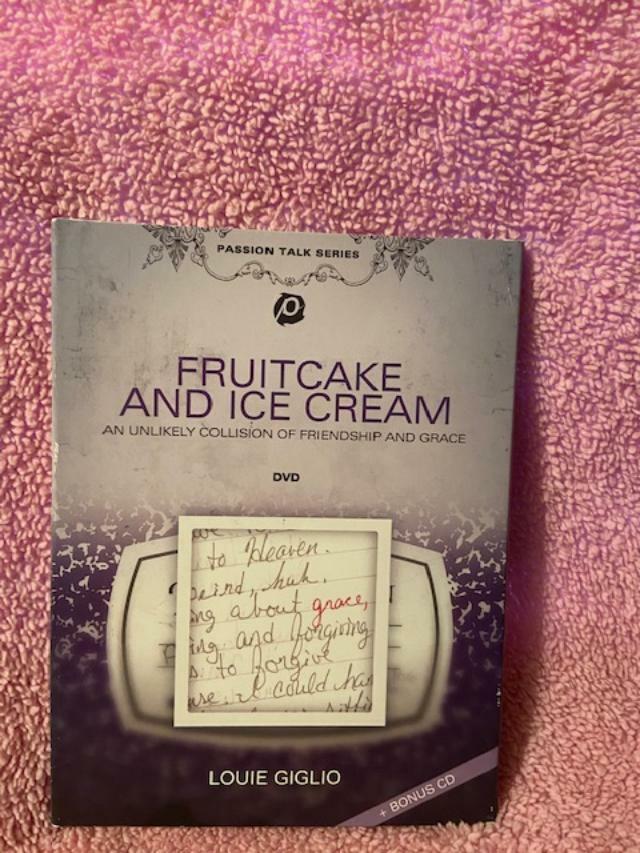 PASSION TALK SERIES
FRUITCAKE
AND ICE CREAM
AN UNLIKELY COLLISION OF FRIENDSHIP AND GRACE
DVD
to Heaven.
huh.
about grace,
and forgiving
to forgive
I could
LOUIE GIGLIO
+ BONUS CD